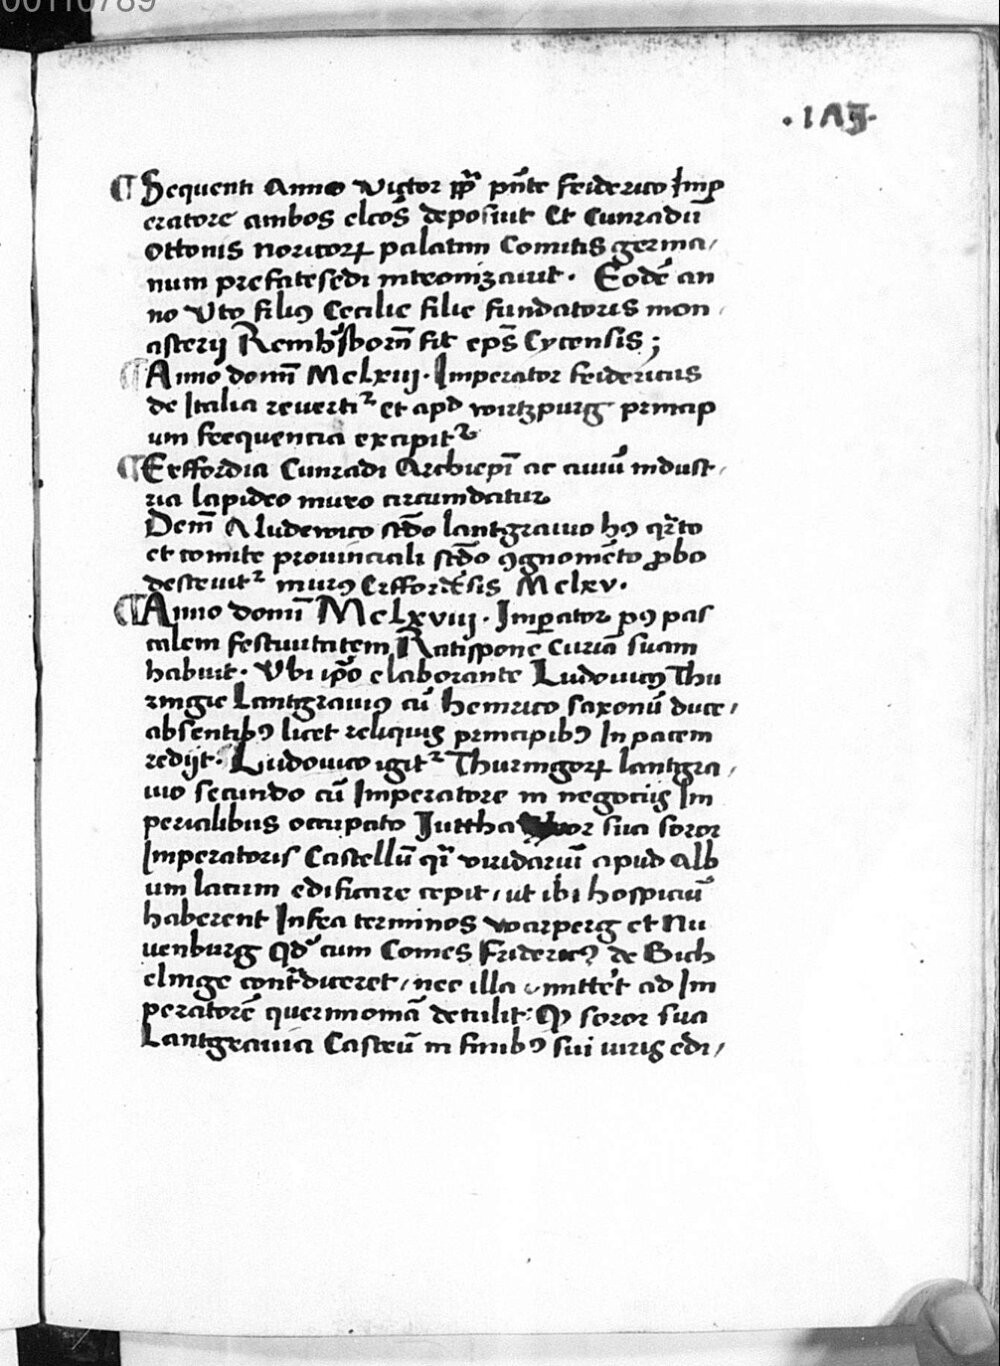 00110789
¶ Sequenti Anno victor pp̄ pn̄te friderico Imp
eratore ambos elcōs deposuit Et Cunradū
Ottonis noricoꝝ palatini Comitis germa/
num prefate sedi intronizauit · Eodē an
no Vto filiꝯ Cecilie filie fundatoris mon/
asterij Remhꝰsborn̄ fit ep̄s Cycensis ;
¶ Anno domī Mclxiij · Imperator fridericus
de Italia reuertiᷣ et apd wirtzpurg princip
um frequencia excipitᷣ
¶ Erffordia Cunradi Archiepī ac ciuiū indust/
ria lapideo muro circumdatur
Dem̄ A ludewico scd̄o lantgrauio hꝯ qr̄to
et comite prouinciali scd̄o ꝯgnomēto ꝓbo
destruitᷣ murꝯ Erffordēsis Mclxv ·
¶ Anno domī Mclxviij · Imꝑator pꝯ pas
calem festiuitatem Ratispone Curiā suam
habuit · Vbi ip̄o elaborante Ludouicꝯ Thu
ringie Lantgrauiꝯ cū henrico saxonū duce /
absentibꝯ licet reliquis principibꝯ In pacem
redijt · Ludouico igitᷣ Thuringoꝝ lantgra /
uio secundo cū Imperatore in negocijs Im
perialibus occupato Juttha sua soror
Imperatoris Castellū qr̄ viridariū apud Alb
um lacum edificare cepit / ut ibi hospiciū
haberent Infra terminos warperg et Nu
uenburg Qd̄ cum Comes Fridericꝯ de Bich
elinge contᷓdiceret / nec illa mittēt ad Im
peratorē querimoniā detulit : Ꝙ soror sua
Lantgrauia Castrū in finibꝯ sui iuris edi /